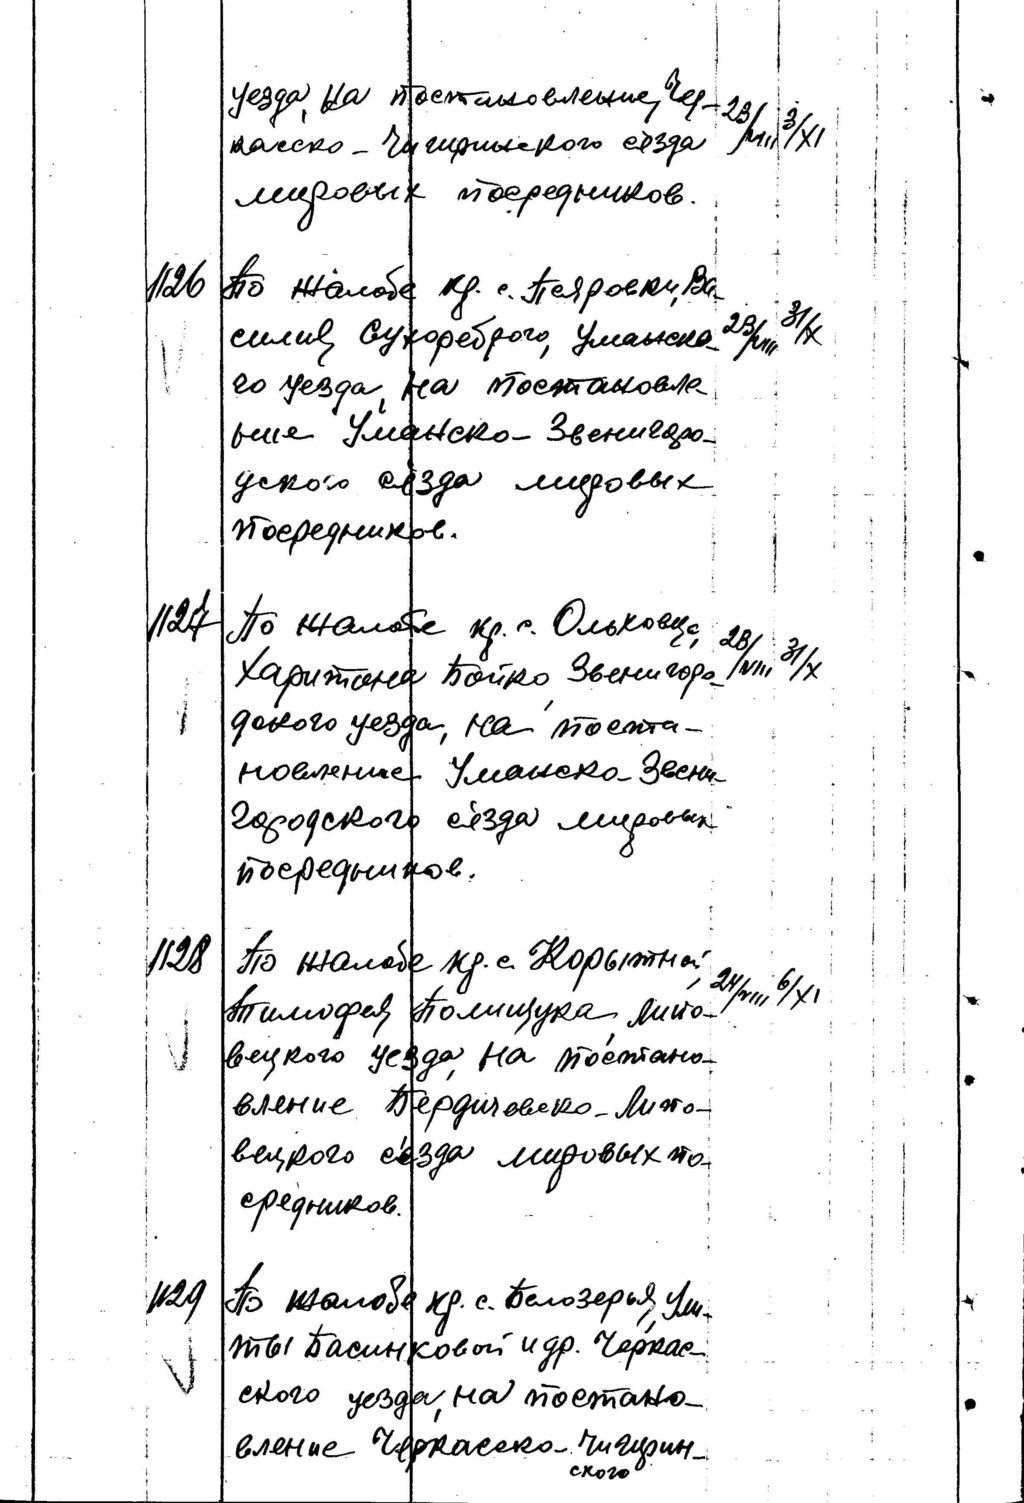 уезда, на постановление Чер- 23/VIII 3/XI
касско-Чигиринского съезда
мировых посредников.
1126 По жалобе кр. с. Псяровки, Ва-
силия Сухореброго, Уманско- 23/VIII 31/X
го уезда, на постановле
ние Уманско-Звенигоро-
дского съезда мировых
посредников.
1127 По жалобе кр. с. Ольховца,
Харитона Бойко, Звенигоро- 23/VIII 31/X
дского уезда, на поста-
новление Уманско-Звени
городского съезда мировых
посредников.
1128 По жалобе кр. с. Корытной,
Тимофея Полищука, Липо- 24/VIII 6/XI
вецкого уезда, на постано-
вление Бердичевско-Липо-
вецкого съезда мировых по-
средников.
1129 По жалобе кр. с. Белозерья, Ули-
ты Басинковой и др. Черкас-
ского уезда, на постано-
вление Черкасско-Чигирин-
ского